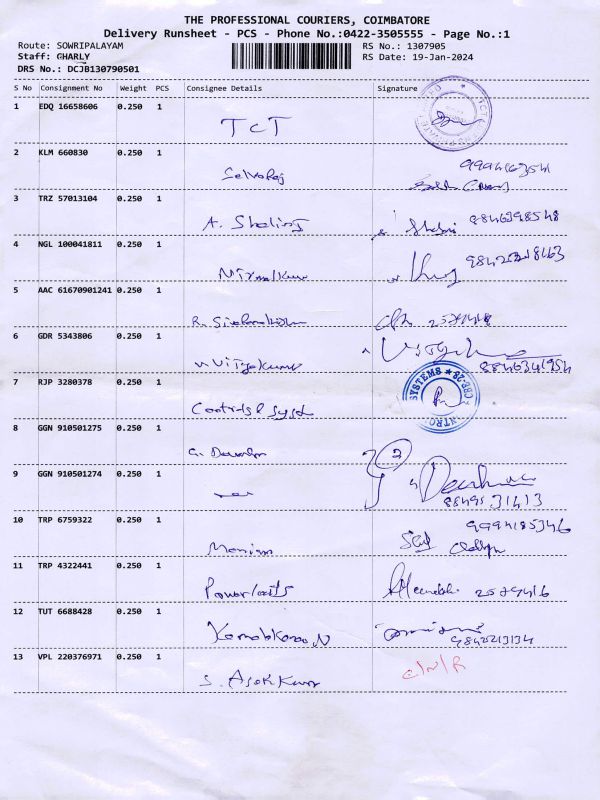 THE PROFESSIONAL COURIERS, COIMBATORE
Delivery Runsheet - PCS - Phone No.:0422-3505555 - Page No.:1
Route: SOWRIPALAYAM RS No.: 1307905
Staff: GHARLY RS Date: 19-Jan-2024
DRS No.: DCJB130790501
S No Consignment No Weight PCS Consignee Details Signature
1 EDQ 16658606 0.250 1
TCT
2 KLM 660830 0.250 1
Selvaraj
3 TRZ 57013104 0.250 1
A. Shaliny 8846398548
4 NGL 100041811 0.250 1
Nirmalkumar
5 AAC 61670901241 0.250 1
6 GDR 5343806 0.250 1
V. Vijayakumar 8846341954
7 RJP 3280378 0.250 1
SYSTEMS
Controls & Syst
8 GGN 910501275 0.250 1
2
9 GGN 910501274 0.250 1
10 TRP 6759322 0.250 1
9994185346
11 TRP 4322441 0.250 1
12 TUT 6688428 0.250 1
9842213134
13 VPL 220376971 0.250 1
C/N/R
S. Asok Kumar